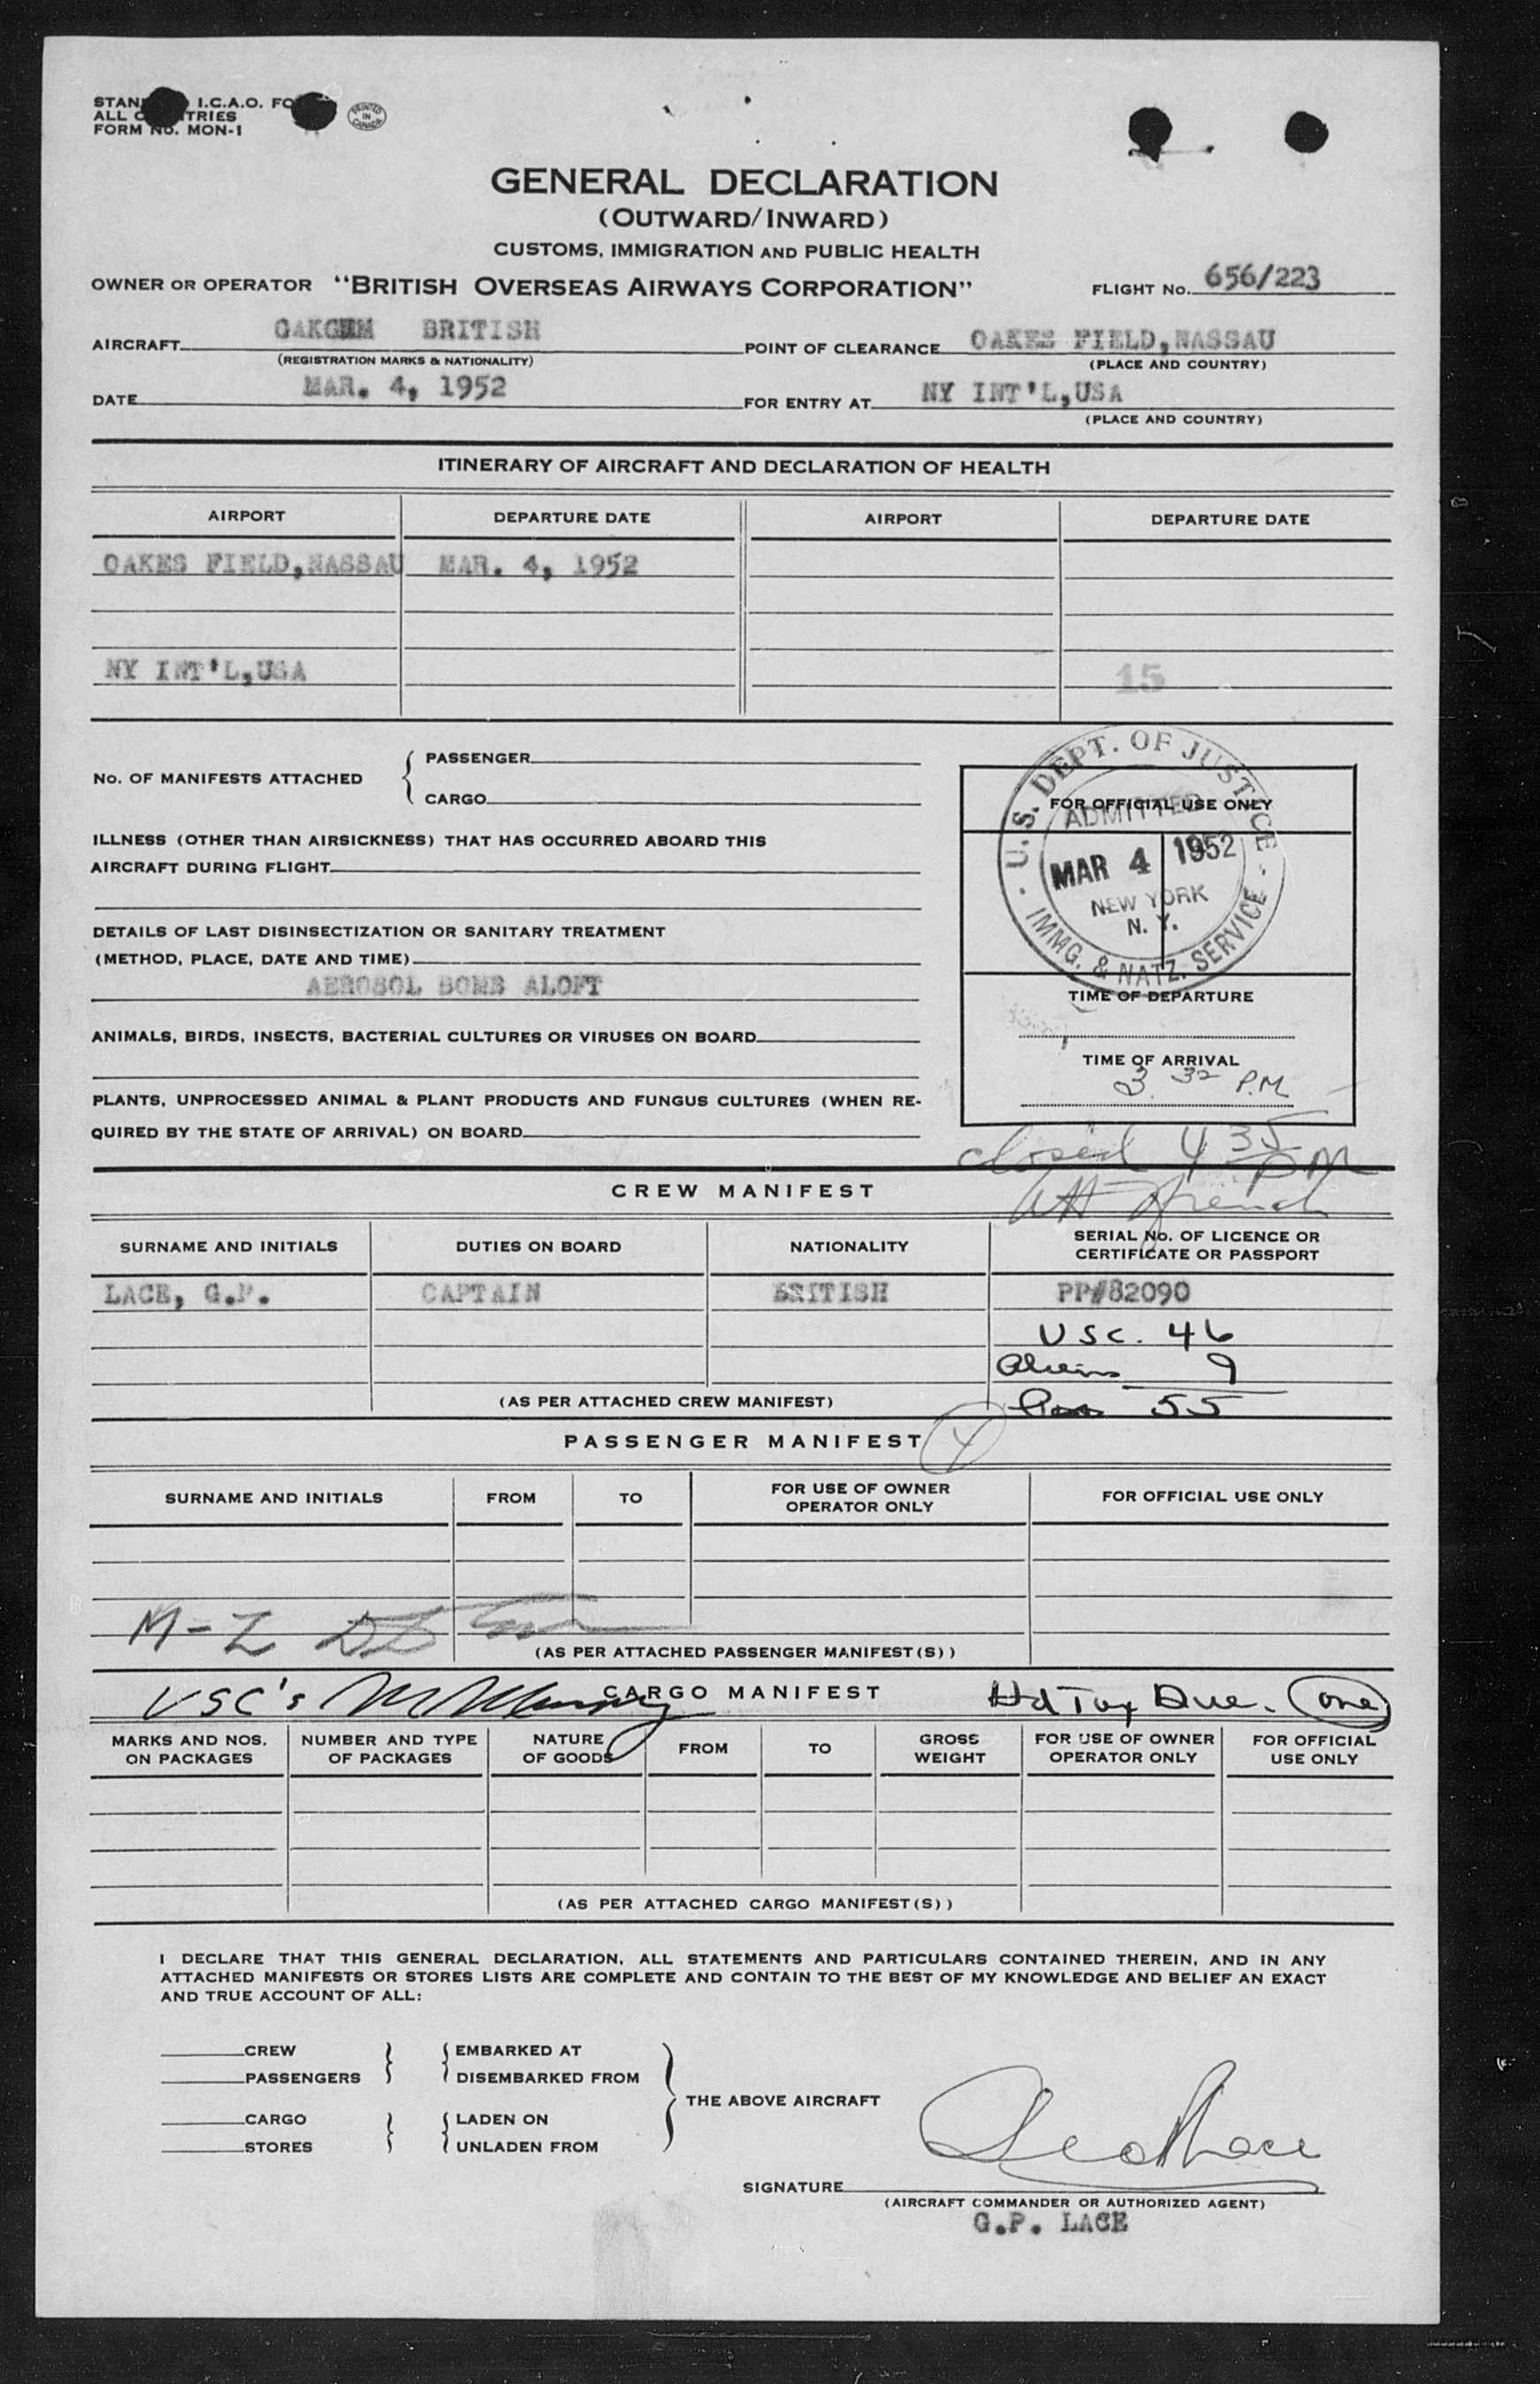 I.C.A.O.
ALL
FORM No. MON-1
PRINTED IN CANADA
GENERAL DECLARATION
(OUTWARD/INWARD)
CUSTOMS, IMMIGRATION AND PUBLIC HEALTH
OWNER OR OPERATOR "BRITISH OVERSEAS AIRWAYS CORPORATION" FLIGHT No. 656/223
AIRCRAFT BRITISH POINT OF CLEARANCE OAKES FIELD, NASSAU
(REGISTRATION MARKS & NATIONALITY) (PLACE AND COUNTRY)
DATE MAR. 4, 1952 FOR ENTRY AT NY INT'L, USA
(PLACE AND COUNTRY)
ITINERARY OF AIRCRAFT AND DECLARATION OF HEALTH
AIRPORT DEPARTURE DATE AIRPORT DEPARTURE DATE
OAKES FIELD, NASSAU MAR. 4, 1952
NY INT'L, USA 15
No. OF MANIFESTS ATTACHED { PASSENGER
CARGO
ILLNESS (OTHER THAN AIRSICKNESS) THAT HAS OCCURRED ABOARD THIS
AIRCRAFT DURING FLIGHT
DETAILS OF LAST DISINSECTIZATION OR SANITARY TREATMENT
(METHOD, PLACE, DATE AND TIME)
AEROSOL BOMB ALOFT
ANIMALS, BIRDS, INSECTS, BACTERIAL CULTURES OR VIRUSES ON BOARD
PLANTS, UNPROCESSED ANIMAL & PLANT PRODUCTS AND FUNGUS CULTURES (WHEN RE-
QUIRED BY THE STATE OF ARRIVAL) ON BOARD
U.S. DEPT. OF JUSTICE
FOR OFFICIAL USE ONLY
ADMITTED
MAR 4 1952
NEW YORK
N. Y.
IMMG. & NATZ. SERVICE
TIME OF DEPARTURE
TIME OF ARRIVAL
3 32 P.M
closed 4 35 PM
CREW MANIFEST
SURNAME AND INITIALS DUTIES ON BOARD NATIONALITY SERIAL No. OF LICENCE OR
CERTIFICATE OR PASSPORT
LACE, G.P. CAPTAIN BRITISH PP#82090
USC. 46
Aliens 9
(AS PER ATTACHED CREW MANIFEST) Pass 55
PASSENGER MANIFEST
SURNAME AND INITIALS FROM TO FOR USE OF OWNER
OPERATOR ONLY FOR OFFICIAL USE ONLY
M-Z
(AS PER ATTACHED PASSENGER MANIFEST(S))
USC's CARGO MANIFEST Hd Tax Due. One
MARKS AND NOS.
ON PACKAGES NUMBER AND TYPE
OF PACKAGES NATURE
OF GOODS FROM TO GROSS
WEIGHT FOR USE OF OWNER
OPERATOR ONLY FOR OFFICIAL
USE ONLY
(AS PER ATTACHED CARGO MANIFEST(S))
I DECLARE THAT THIS GENERAL DECLARATION, ALL STATEMENTS AND PARTICULARS CONTAINED THEREIN, AND IN ANY
ATTACHED MANIFESTS OR STORES LISTS ARE COMPLETE AND CONTAIN TO THE BEST OF MY KNOWLEDGE AND BELIEF AN EXACT
AND TRUE ACCOUNT OF ALL:
CREW EMBARKED AT
PASSENGERS DISEMBARKED FROM
THE ABOVE AIRCRAFT
CARGO LADEN ON
STORES UNLADEN FROM
SIGNATURE
(AIRCRAFT COMMANDER OR AUTHORIZED AGENT)
G.P. LACE